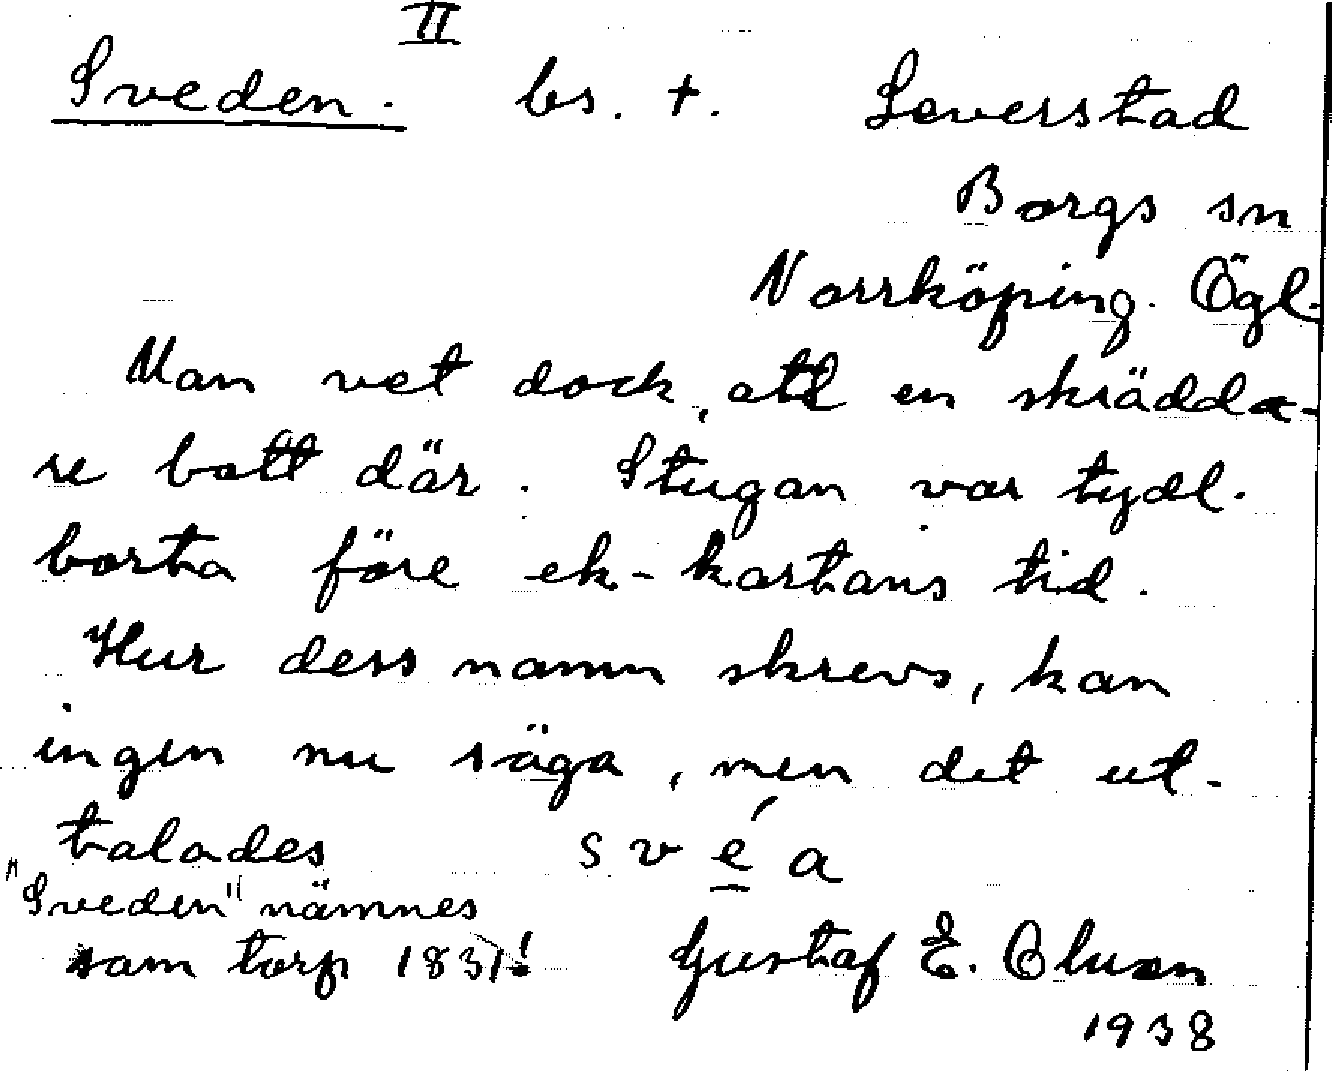 II
Sveden. bs. +. Leverstad
Borgs sn
Norrköping. Ögl.
Man vet dock, att en skrädda-
re bott där. Stugan var tydl.
borta före ek-kartans tid.
Hur dess namn skrevs, kan
ingen nu säga, men det ut-
talades svéa
"Sveden" nämnes
som torp 1831!
Gustaf E. Oluson
1938